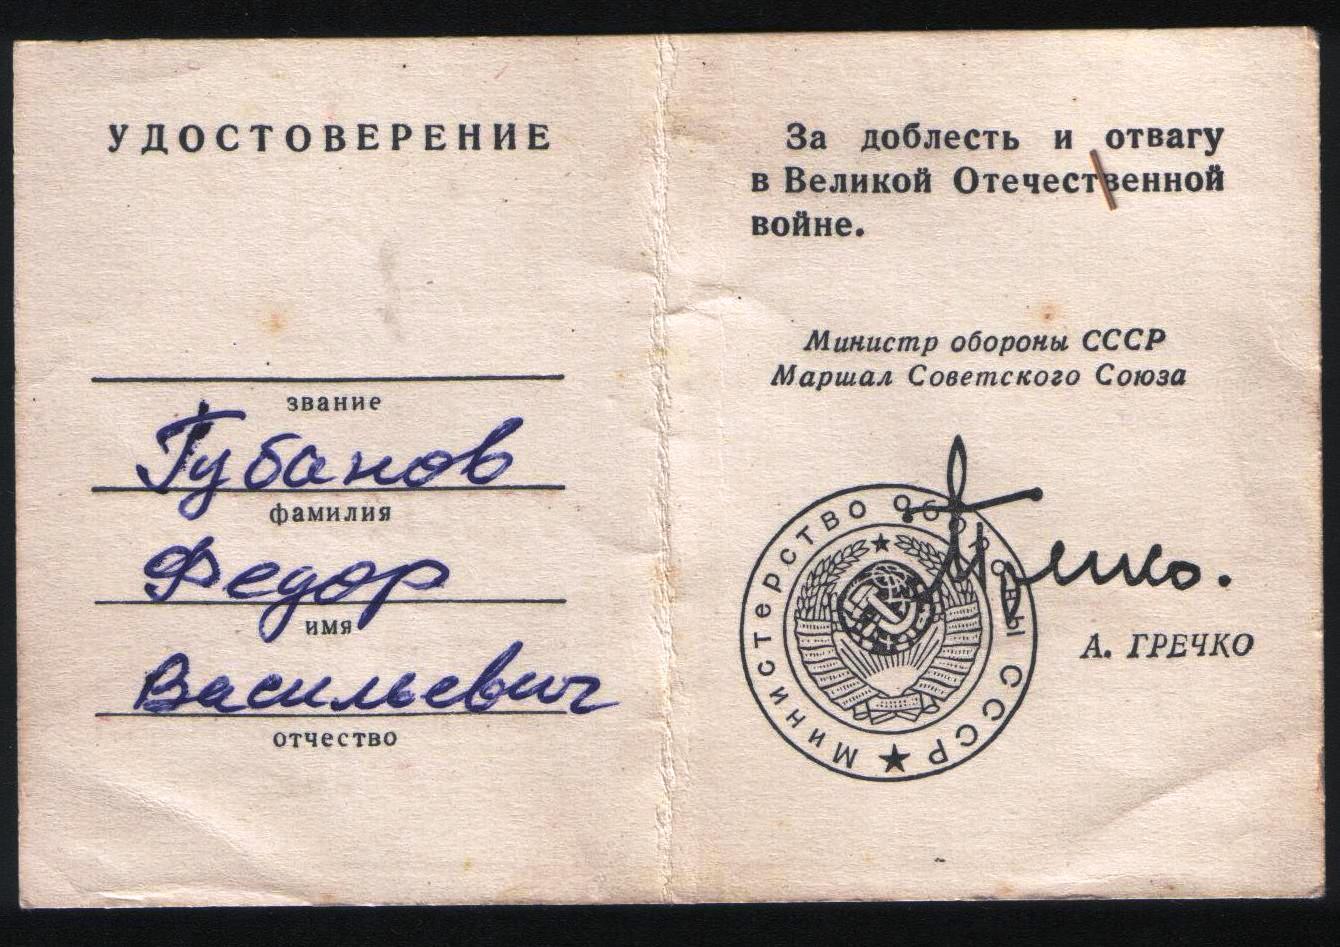 УДОСТОВЕРЕНИЕ
звание
Губанов
фамилия
Федор
имя
Васильевич
отчество
За доблесть и отвагу
в Великой Отечественной
войне.
Министр обороны СССР
Маршал Советского Союза
Гречко.
Министерство Обороны СССР
А. ГРЕЧКО